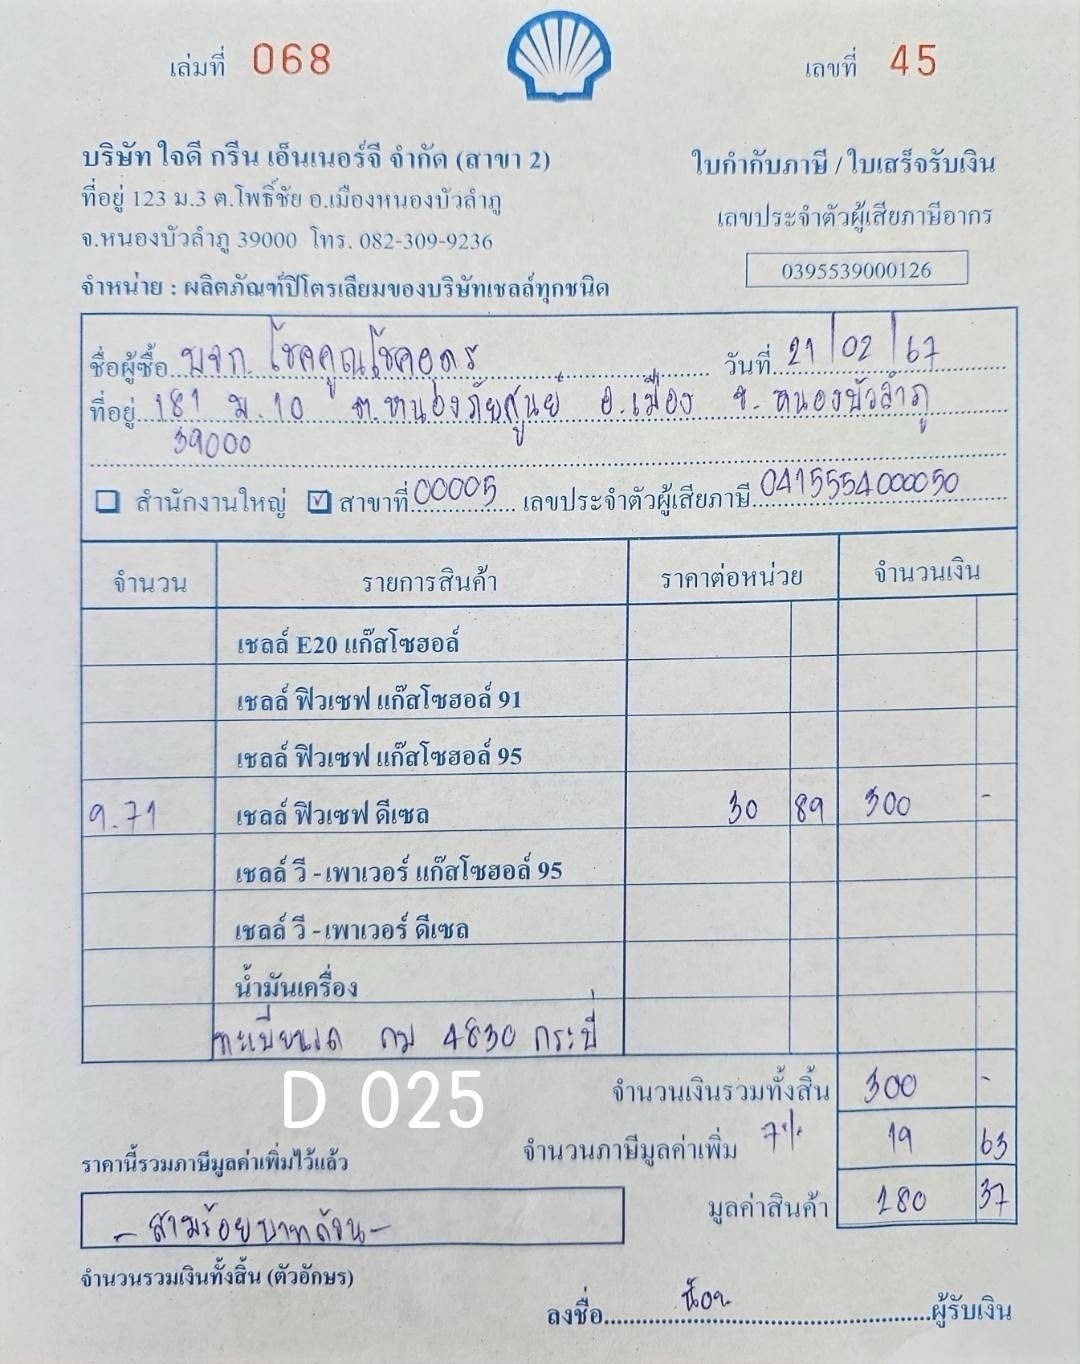 เล่มที่ 068
เลขที่ 45
บริษัท ใจดี กรีน เอ็นเนอร์จี จำกัด (สาขา 2)
ใบกำกับภาษี / ใบเสร็จรับเงิน
ที่อยู่ 123 ม.3 ต.โพธิ์ชัย อ.เมืองหนองบัวลำภู
เลขประจำตัวผู้เสียภาษีอากร
จ.หนองบัวลำภู 39000 โทร. 082-309-9236
0395539000126
จำหน่าย : ผลิตภัณฑ์ปิโตรเลียมของบริษัทเชลล์ทุกชนิด
ชื่อผู้ซื้อ หจก. โชคคูณโชคอุดร วันที่ 21/02/67
ที่อยู่ 181 ม.10 ต.หนองภัยศูนย์ อ.เมือง จ.หนองบัวลำภู
39000
สำนักงานใหญ่ สาขาที่ 00005 เลขประจำตัวผู้เสียภาษี 0415554000050
จำนวน รายการสินค้า ราคาต่อหน่วย จำนวนเงิน
เชลล์ E20 แก๊สโซฮอล์
เชลล์ ฟิวเซฟ แก๊สโซฮอล์ 91
เชลล์ ฟิวเซฟ แก๊สโซฮอล์ 95
9.71 เชลล์ ฟิวเซฟ ดีเซล 30 89 300 -
เชลล์ วี - เพาเวอร์ แก๊สโซฮอล์ 95
เชลล์ วี - เพาเวอร์ ดีเซล
น้ำมันเครื่อง
ทะเบียนรถ กม 4830 กระบี่
D 025
จำนวนเงินรวมทั้งสิ้น 300 -
จำนวนภาษีมูลค่าเพิ่ม 7% 19 63
ราคานี้รวมภาษีมูลค่าเพิ่มไว้แล้ว
มูลค่าสินค้า 280 37
- สามร้อยบาทถ้วน -
จำนวนรวมเงินทั้งสิ้น (ตัวอักษร)
ลงชื่อ ผู้รับเงิน